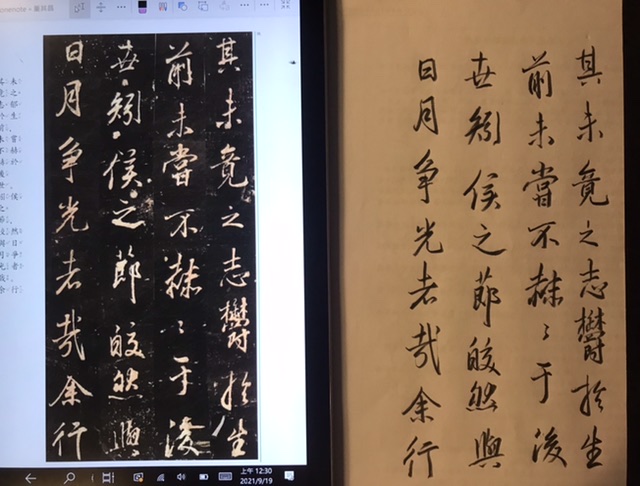 onenote
其未竟之志鬱於生
前未嘗不赫〻于後
世矧侯之節皎然與
日月争光者哉余行
上午 12:30
2021/9/19
其未竟之志鬱於生
前未嘗不赫〻于後
世矧侯之節皎然與
日月争光者哉余行